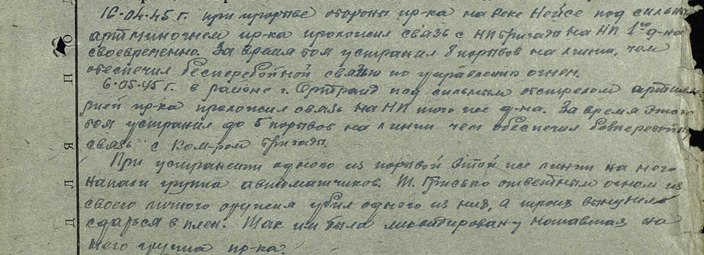 16-04-45 г. при прорыве обороны пр-ка на реке Нейсе под сильн.
артминогнем пр-ка проложил связь с НП бригады на НП 1го д-на
своевременно. За время боя устранил 8 порывов на линии, чем
обеспечил бесперебойной связью по управлению огнем.
6-05-45 г. в районе г. Ортранд под сильным обстрелом артилле
рией пр-ка проложил связь на НП того же д-на. За время этого
боя устранил до 5 порывов на линии чем обеспечил
связь с ком-ром бригады.
При устранении одного из порывов этой же линии на него
напали группа автоматчиков. Т. ответным огнем из
своего личного оружия убил одного из них, а троих вынудил
сдаться в плен. Так им была ликвидирована напавшая на
него группа пр-ка.
Д Л Я П О